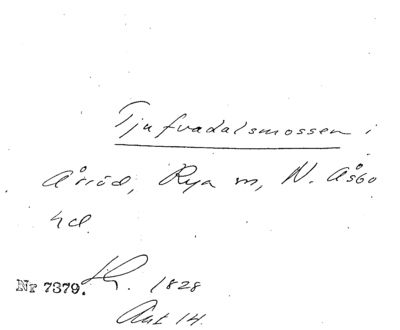 Tjufvadalsmossen i
Årröd, Rya m, N. Åsbo
hd.
Nr 7379. 1828
Akt 14.